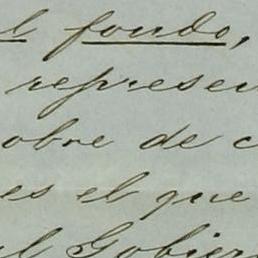 l fondo,
represen
obre de c
es el que
al Gobier